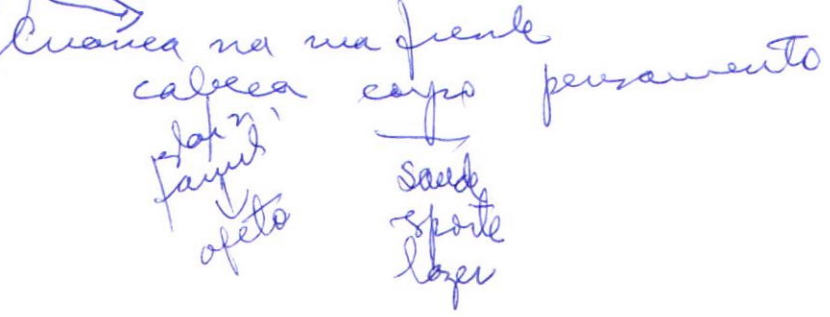 Criança na sua frente
cabeça corpo pensamento
famil
afeto
saude
esporte
lazer